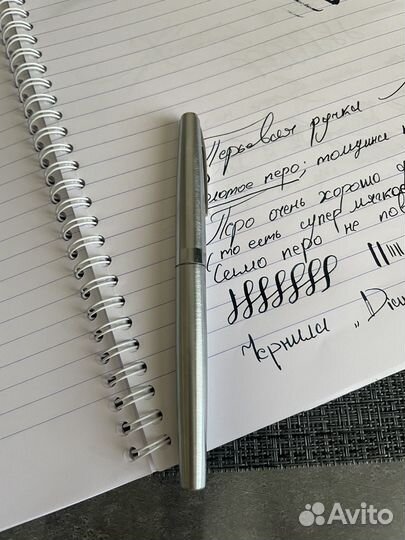 Перьевая ручка
золотое перо; толщина
Перо очень хорошо
(то есть супер мягкое
Само перо не пов
Чернила „Diam
Avito